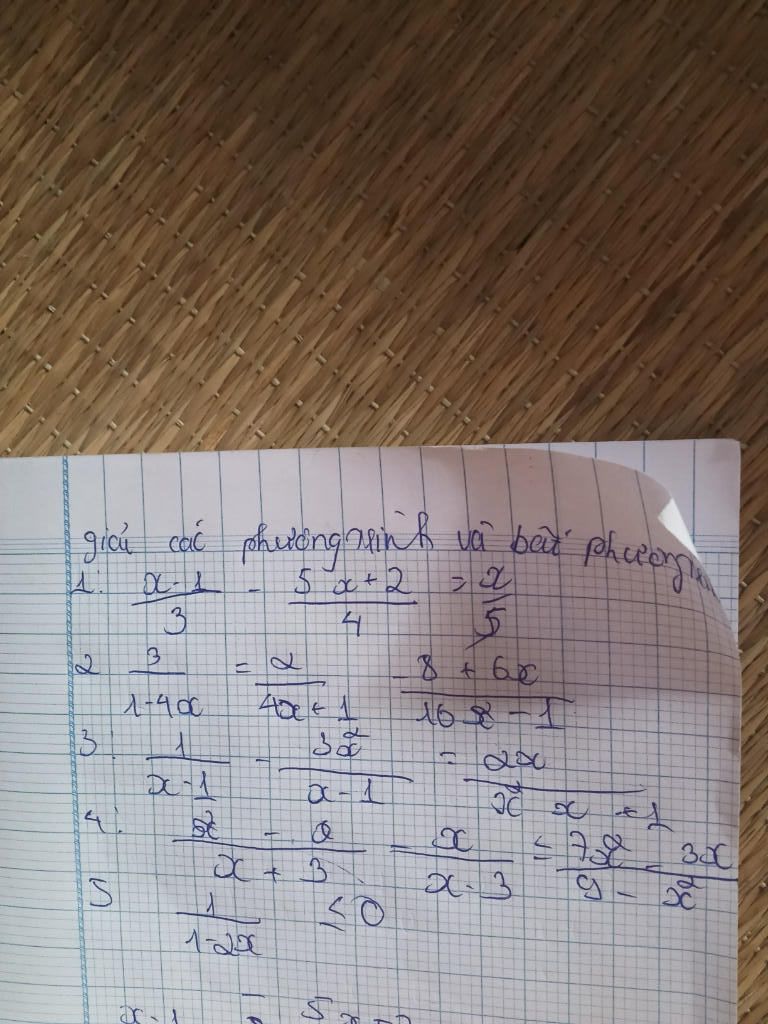 giải các phương trình và bất phương
1: x-1/3 - 5x+2/4 = x/5
2 3/1-4x = 2/4x+1 - 8+6x/16x²-1
3: 1/x-1 - 3x²/x-1 = 2x/x² x +1
4: x² - /x+3 - x/x-3 = 7x² - 3x/9-x²
5 1/1-2x ≤ 0
x-1 - 5x+2